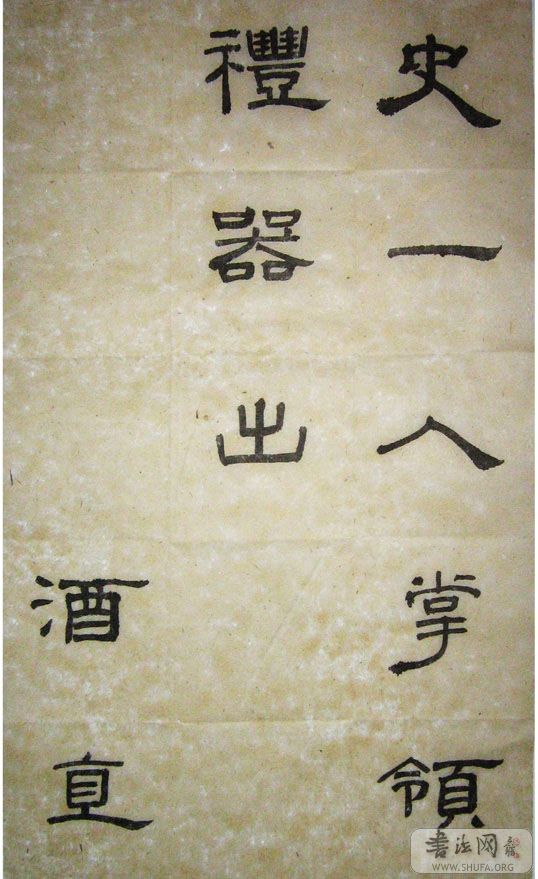 史一人掌領
禮器出
酒直
書法网
WWW.SHUFA.ORG